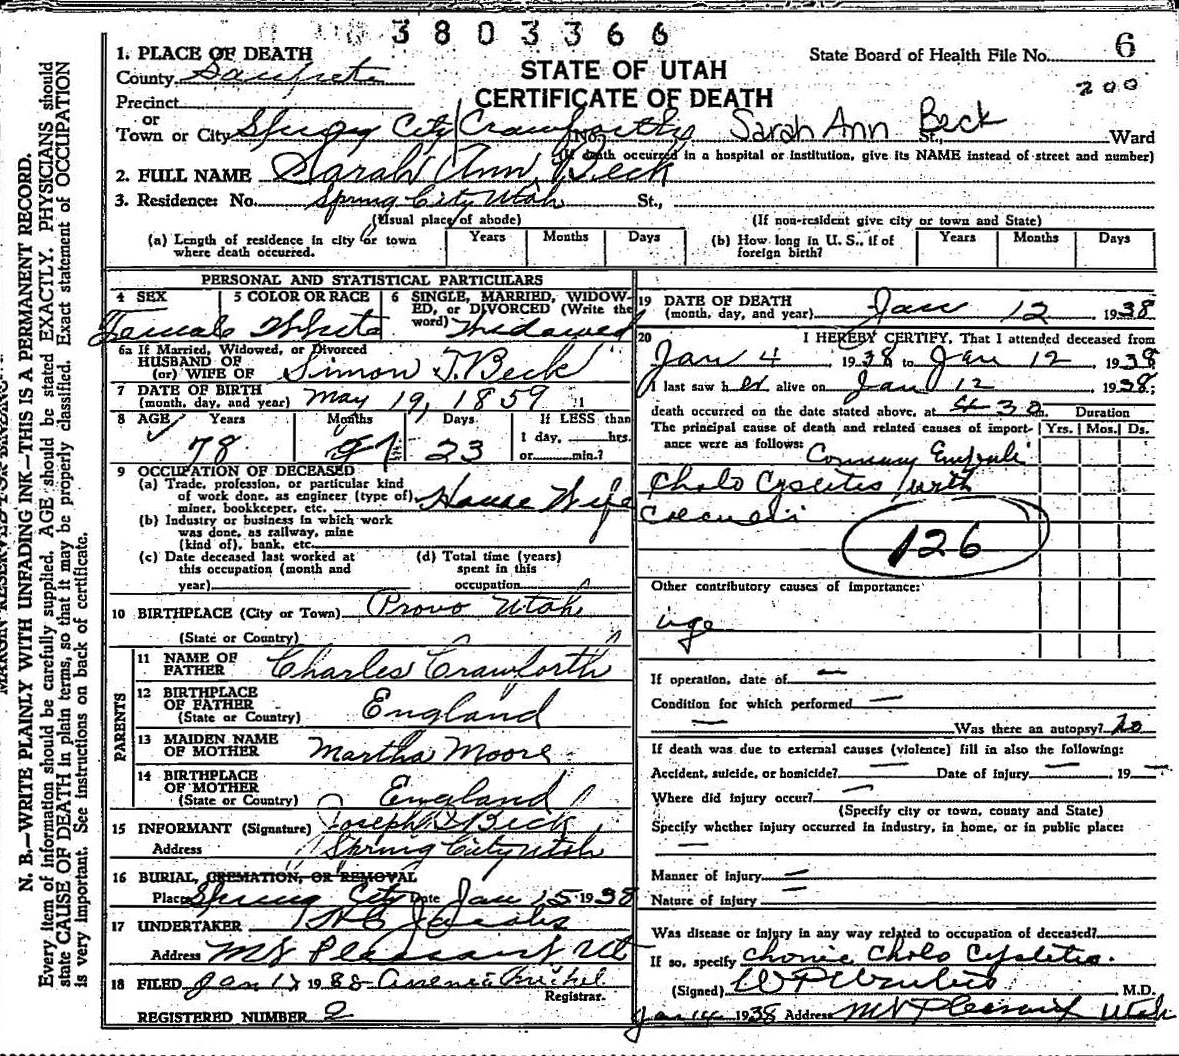 3803366
State Board of Health File No. 6
200
STATE OF UTAH
CERTIFICATE OF DEATH
1. PLACE OF DEATH
County Sanpete
Precinct
or
Town or City Spring City Crawforth No. Sarah Ann Beck St., Ward
(If death occurred in a hospital or institution, give its NAME instead of street and number)
2. FULL NAME Sarah Ann Beck
3. Residence: No. Spring City Utah St.,
(Usual place of abode) (If non-resident give city or town and State)
(a) Length of residence in city or town where death occurred. Years Months Days (b) How long in U. S., if of foreign birth? Years Months Days
PERSONAL AND STATISTICAL PARTICULARS
4 SEX 5 COLOR OR RACE 6 SINGLE, MARRIED, WIDOW-
ED, or DIVORCED (Write the
word)
Female White Widowed
6a If Married, Widowed, or Divorced
HUSBAND OF
(or) WIFE OF Simon T. Beck
7 DATE OF BIRTH
(month, day, and year) May 19, 1859
8 AGE Years Months Days If LESS than
1 day, hrs.
78 23 or min.?
9 OCCUPATION OF DECEASED
(a) Trade, profession, or particular kind
of work done, as engineer (type of)
miner, bookkeeper, etc. House Wife
(b) Industry or business in which work
was done, as railway, mine
(kind of), bank, etc.
(c) Date deceased last worked at
this occupation (month and
year)
(d) Total time (years)
spent in this
occupation
10 BIRTHPLACE (City or Town) Provo Utah
(State or Country)
PARENTS
11 NAME OF
FATHER Charles Crawforth
12 BIRTHPLACE
OF FATHER
(State or Country) England
13 MAIDEN NAME
OF MOTHER Martha Moore
14 BIRTHPLACE
OF MOTHER
(State or Country) England
15 INFORMANT (Signature) Joseph S Beck
Address Spring City Utah
16 BURIAL, CREMATION, OR REMOVAL
Place Spring City Date Jan 15 1938
17 UNDERTAKER
Address Mt Pleasant Ut
18 FILED Jan 1938
Registrar.
REGISTERED NUMBER 2
19 DATE OF DEATH
(month, day, and year) Jan 12 1938
20 I HEREBY CERTIFY, That I attended deceased from
Jan 4 1938 to Jan 12 1938
I last saw her alive on Jan 12 1938;
death occurred on the date stated above, at 4 30 m.
Duration
The principal cause of death and related causes of import-
ance were as follows:
Yrs. Mos. Ds.
Cholo Cystitis with
126
Other contributory causes of importance:
age
If operation, date of —
Condition for which performed —
— Was there an autopsy? no
If death was due to external causes (violence) fill in also the following:
Accident, suicide, or homicide? — Date of injury — 19 —
Where did injury occur? —
(Specify city or town, county and State)
Specify whether injury occurred in industry, in home, or in public place:
—
Manner of injury —
Nature of injury —
Was disease or injury in any way related to occupation of deceased?
If so, specify chonic Cholo Cystitis.
(Signed) M.D.
Jan 14 1938 Address Mt Pleasant Utah
N. B.—WRITE PLAINLY WITH UNFADING INK—THIS IS A PERMANENT RECORD.
Every item of information should be carefully supplied. AGE should be stated EXACTLY. PHYSICIANS should
state CAUSE OF DEATH in plain terms, so that it may be properly classified. Exact statement of OCCUPATION
is very important. See instructions on back of certificate.